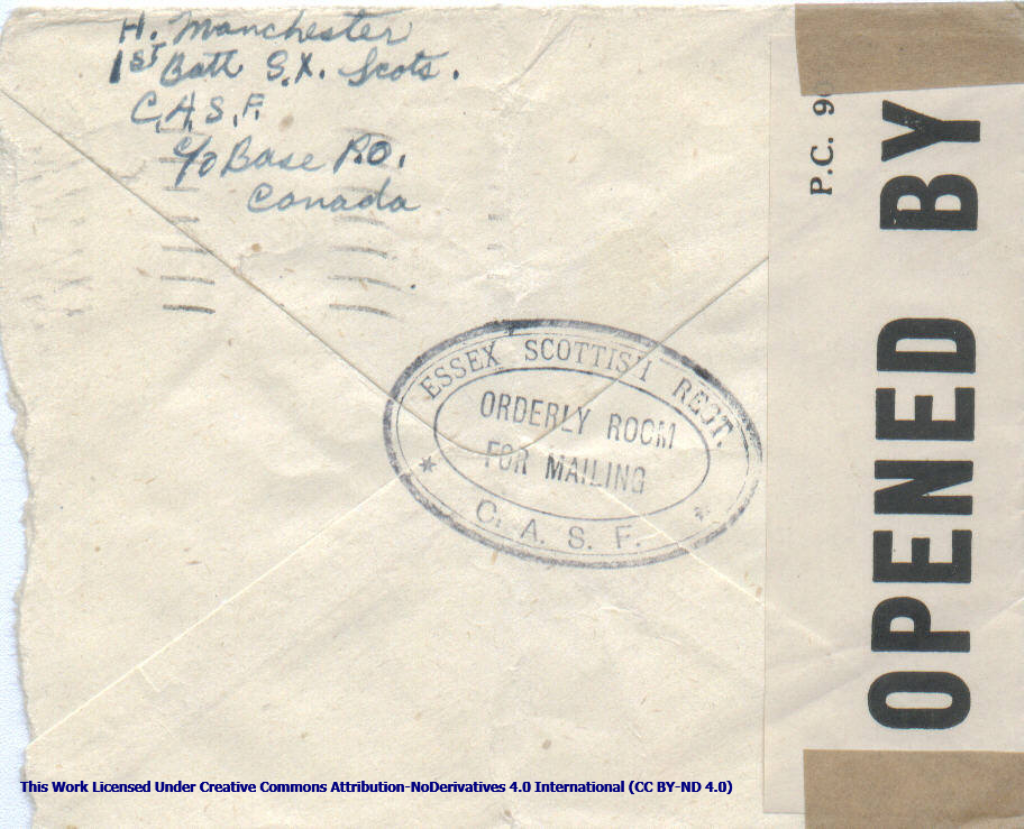 H. Manchester
1st Batt S.X. Scots.
C.A.S.F.
c/o Base P.O.
Canada
ESSEX SCOTTISH REGT.
ORDERLY ROOM
FOR MAILING
C. A. S. F.
P.C. 9
OPENED BY
This Work Licensed Under Creative Commons Attribution-NoDerivatives 4.0 International (CC BY-ND 4.0)